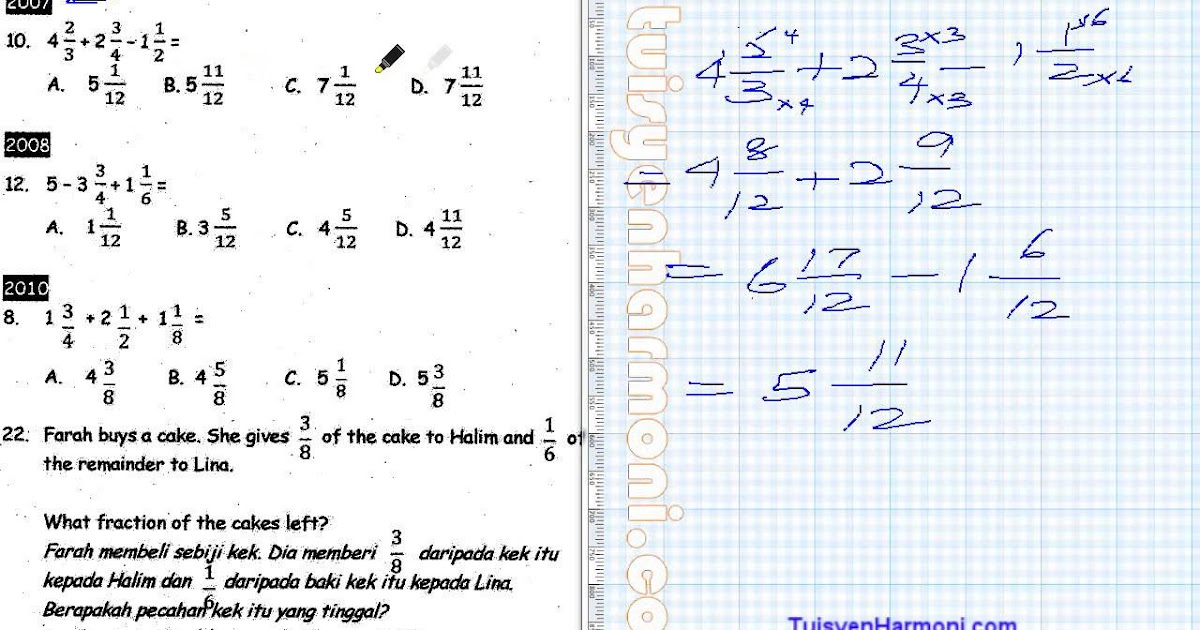 2007
10. 4 2/3 + 2 3/4 - 1 1/2 =
A. 5 1/12 B. 5 11/12 C. 7 1/12 D. 7 11/12
2008
12. 5 - 3 3/4 + 1 1/6 =
A. 1 1/12 B. 3 5/12 C. 4 5/12 D. 4 11/12
2010
8. 1 3/4 + 2 1/2 + 1 1/8 =
A. 4 3/8 B. 4 5/8 C. 5 1/8 D. 5 3/8
22. Farah buys a cake. She gives 3/8 of the cake to Halim and 1/6 of
the remainder to Lina.
What fraction of the cakes left?
Farah membeli sebiji kek. Dia memberi 3/8 daripada kek itu
kepada Halim dan 1/6 daripada baki kek itu kepada Lina.
Berapakah pecahan kek itu yang tinggal?
tuisyenharmoni.co
+ 2 3×3/4×3 -
4 8/12 + 2 9/12
= 6 17/12 - 1 6/12
= 5 11/12
TuisyenHarmoni.com